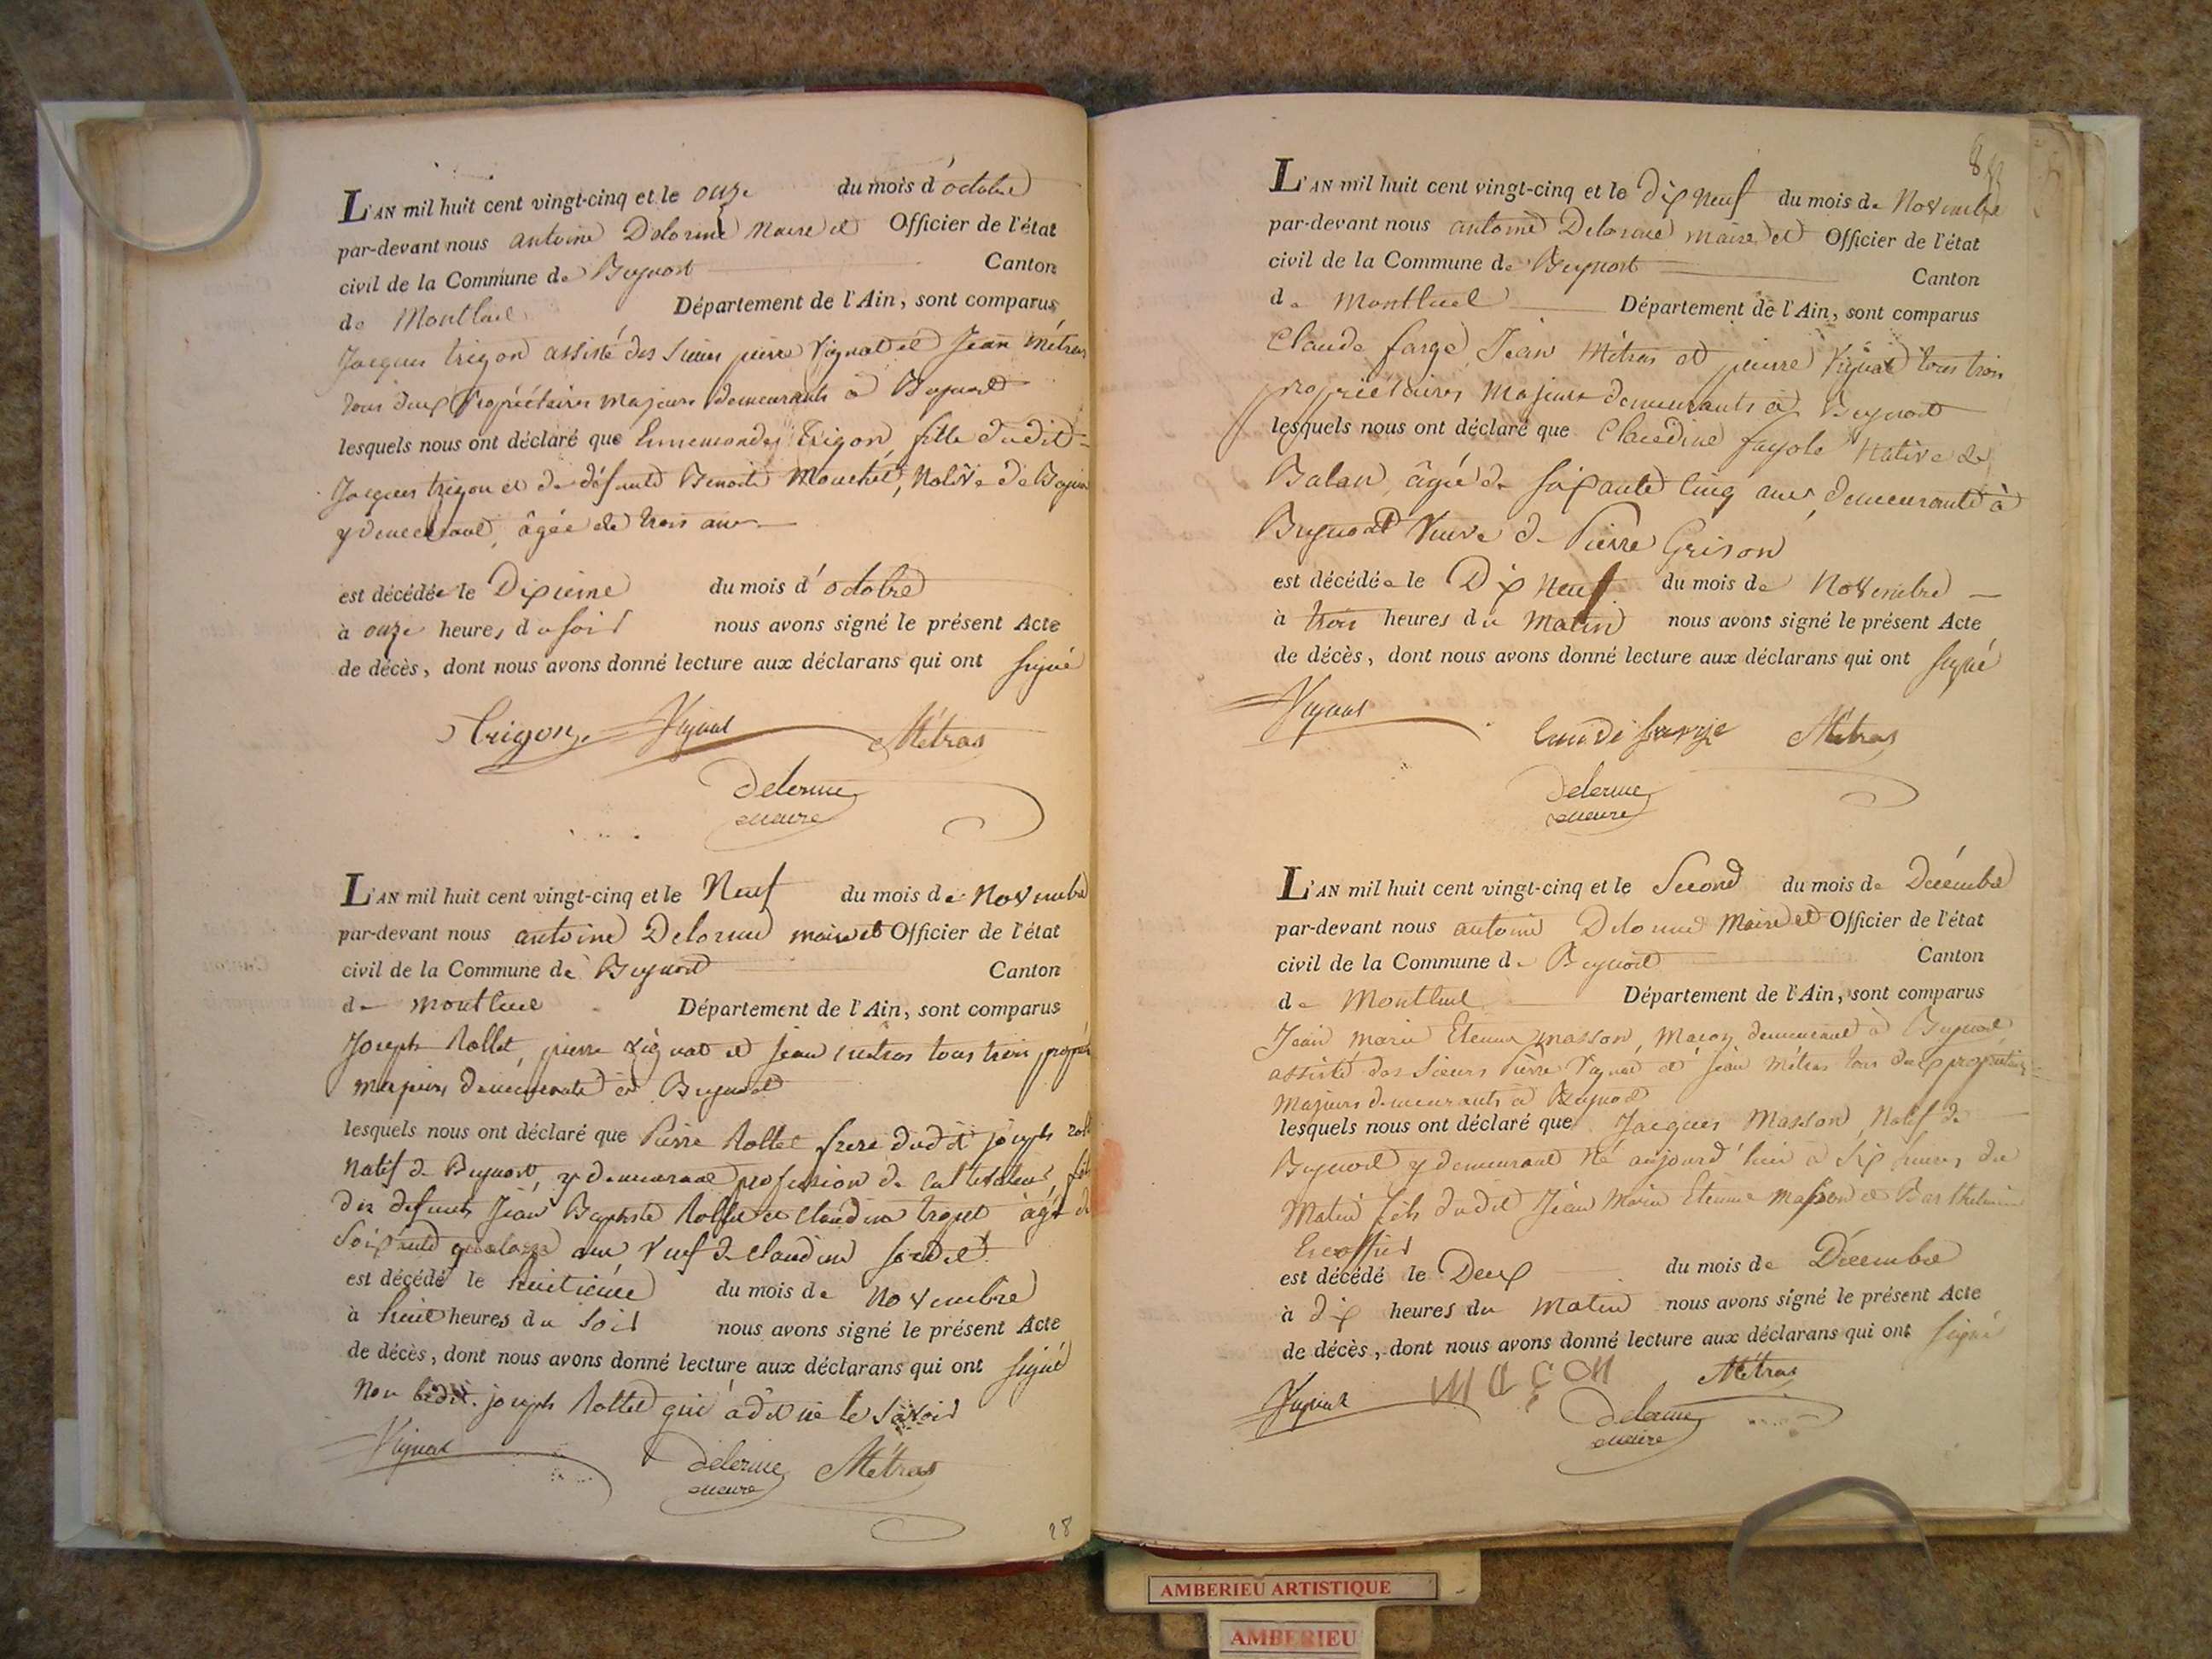 L'AN mil huit cent vingt-cinq et le onze du mois d'octobre
par-devant nous antoine Delorme Maire et Officier de l'état
civil de la Commune de Beynost Canton
de Montluel Département de l'Ain, sont comparus
Jacques trigon assisté des Sieurs pierre Vignat et Jean Métras
tous deux Propriétaires majeurs demeurants à Beynost
lesquels nous ont déclaré que Ennemonde trigon fille dudit
Jacques trigon et de défunte Benoite Mouchet, Native de
y demeurant, âgée de trois ans
est décédée le Dixieme du mois d'octobre
à onze heures du soir nous avons signé le présent Acte
de décès, dont nous avons donné lecture aux déclarans qui ont signé
Trigon Vignat Métras
delorme
maire
L'AN mil huit cent vingt-cinq et le Neuf du mois de Novembre
par-devant nous antoine Delorme maire et Officier de l'état
civil de la Commune de Beynost Canton
de montluel Département de l'Ain, sont comparus
Joseph Rollet, pierre Vignat et jean métras tous trois
majeurs demeurants à Beynost
lesquels nous ont déclaré que Pierre Rollet frere dudit joseph
Natif de Beynost, y demeurant profession de cultivateur,
des defunts Jean Baptiste Rollet et Claudine âgé de
Soixante quatorze ans Veuf de Claudine
est décédé le huitieme du mois de Novembre
à huit heures du Soir nous avons signé le présent Acte
de décès, dont nous avons donné lecture aux déclarans qui ont signé
Non ledit joseph Rollet qui a dit ne le savoir
Vignat delorme Métras
maire
28
L'AN mil huit cent vingt-cinq et le Dix Neuf du mois de Novembre
par-devant nous antoine Delorme maire et Officier de l'état
civil de la Commune de Beynost Canton
de Montluel Département de l'Ain, sont comparus
Claude farge, Jean Métras et pierre Vignat tous trois
propriétaires Majeurs demeurants à Beynost
lesquels nous ont déclaré que Claudine fayole Native de
Balan, âgée de soixante cinq ans, demeurante à
Beynost Veuve de Pierre Grison
est décédée le Dix Neuf du mois de Novembre
à trois heures du Matin nous avons signé le présent Acte
de décès, dont nous avons donné lecture aux déclarans qui ont signé
Vignat Métras
delorme
maire
L'AN mil huit cent vingt-cinq et le Second du mois de Décembre
par-devant nous antoine Delorme Maire et Officier de l'état
civil de la Commune de Beynost Canton
de Montluel Département de l'Ain, sont comparus
Jean marie Etienne masson, Maçon, demeurant à Beynost
assisté des Sieurs Pierre Vignat et jean Métras tous deux propriétaires
Majeurs demeurants à Beynost
lesquels nous ont déclaré que Jacques Masson, Natif de
Beynost y demeurant Né aujourd'hui à Six heures du
Matin fils dudit Jean Marie Etienne Masson et
Escoffier
est décédé le Deux du mois de Décembre
à dix heures du Matin nous avons signé le présent Acte
de décès, dont nous avons donné lecture aux déclarans qui ont signé
Vignat MAÇON Métras
delorme
maire
AMBERIEU ARTISTIQUE
AMBERIEU